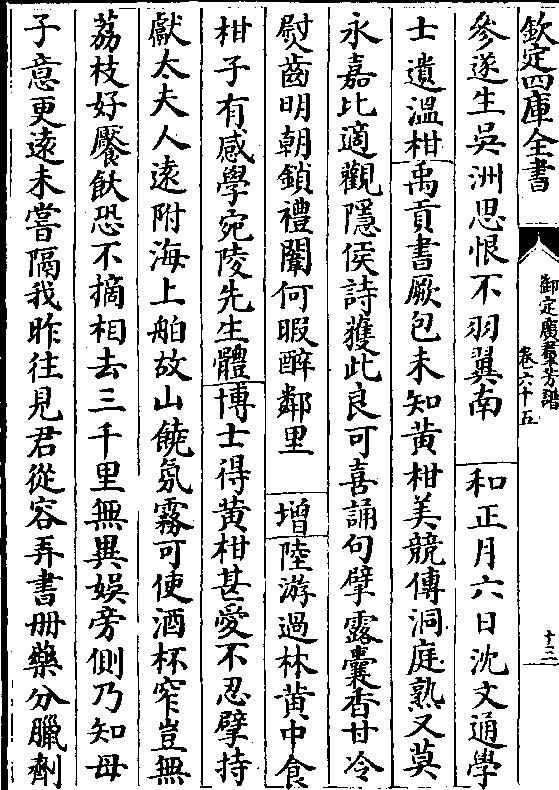 欽定四庫全書
御定廣羣芳譜
卷六十五
十三
參遂生吳洲思恨不羽翼南 和正月六日沈文通學
士遺溫柑禹貢書厥包未知黄柑美競傳洞庭熟又莫
永嘉比適觀隱侯詩獲此良可喜誦句擘露囊香甘冷
熨齒明朝鎖禮闈何暇醉鄰里 增陸游過林黄中食
柑子有感學宛陵先生體博士得黄柑甚愛不忍擘持
獻太夫人遠附海上舶故山饒氛霧可使酒杯窄豈無
荔枝好饜飫恐不摘相去三千里無異娯旁側乃知母
子意更遠未嘗隔我昨往見君從容弄書册藥分臘劑